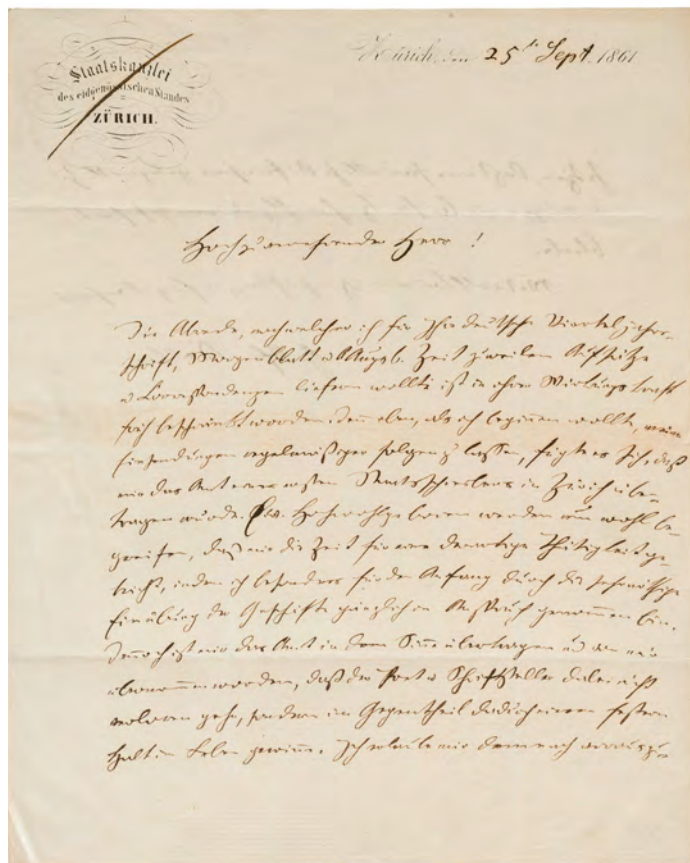 Staatskanzlei
des eidgenössischen Standes
ZÜRICH.
Zürich, den 25t Sept. 1861
Hochzuverehrender Herr!
Die Abrede, nach welcher ich für Ihre deutsche Vierteljahr-
schrift, Morgenblatt u Augsb. Zeit zuweilen Aufsätze
u Correspondenzen liefern wollte ist in ihrer Wirkungskraft
früh beschränkt worden. Denn eben, als ich beginnen wollte, meine
Einsendungen regelmäßiger folgen zu lassen, fügte es sich, daß
mir das Amt eines ersten Staatsschreibers in Zürich über-
tragen wurde. Ew. Hochwohlgeboren werden nun wohl be-
greifen, daß mir die Zeit für eine derartige Thätigkeit ge-
bricht, indem ich besonders für den Anfang durch die
Einübung der Geschäfte gänzlich in Anspruch genommen bin.
Dennoch ist mir das Amt in dem Sinne übertragen und von mir
übernommen worden, daß der Poet u Schriftsteller dabei nicht
verloren gehe, sondern im Gegentheil dadurch einen festern
Halt im Leben gewinne. Ich erlaube mir demnach